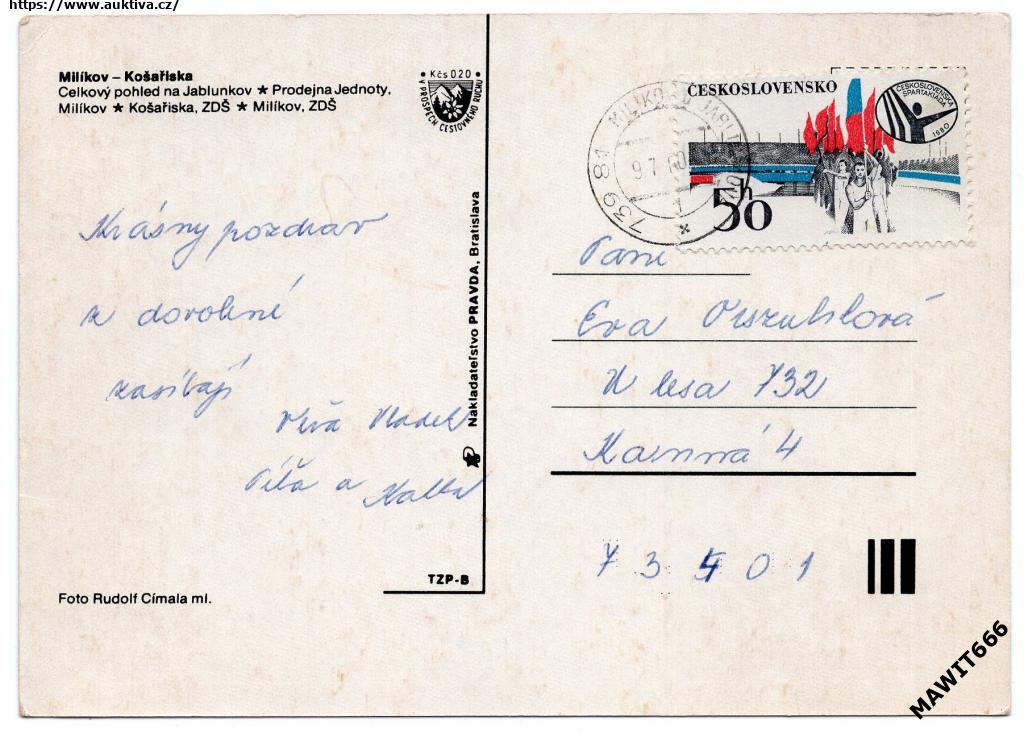 https://www.auktiva.cz/
Milíkov – Košařiska
Celkový pohled na Jablunkov ★ Prodejna Jednoty,
Milíkov ★ Košařiska, ZDŠ ★ Milíkov, ZDŠ
Kčs 020
V PROSPĚCH CESTOVNÉHO RUCHU
Krásný pozdrav
z dovolené
zasílají
Vladek
a
Foto Rudolf Címala ml.
Nakladateľstvo PRAVDA, Bratislava
TZP-B
ČESKOSLOVENSKO
ČESKOSLOVENSKÁ
SPARTAKIÁDA
1980
50h
739 81 MILÍKOV U JABLUNKOVA
9.7.80
1
Paní
Eva Orszulíková
U lesa 732
Karviná 4
73401
MAWIT666